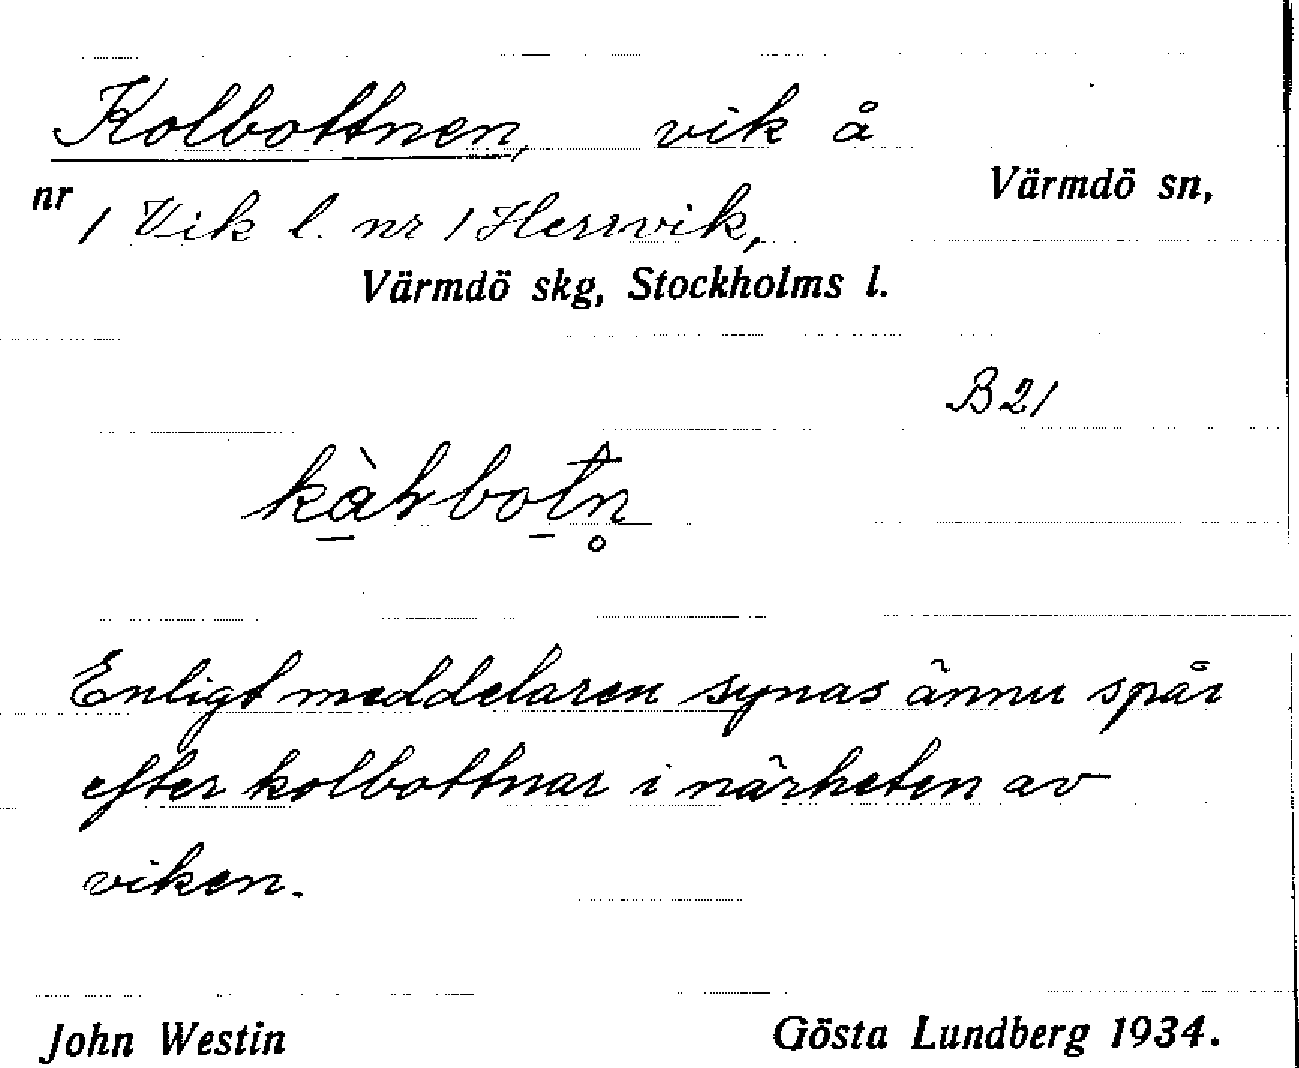 Kolbottnen, vik å
Värmdö sn,
nr 1 Vik l. nr 1 Herrvik,
Värmdö skg, Stockholms l.
B21
Enligt meddelaren synas ännu spår
efter kolbottnar i närheten av
viken.
John Westin Gösta Lundberg 1934.